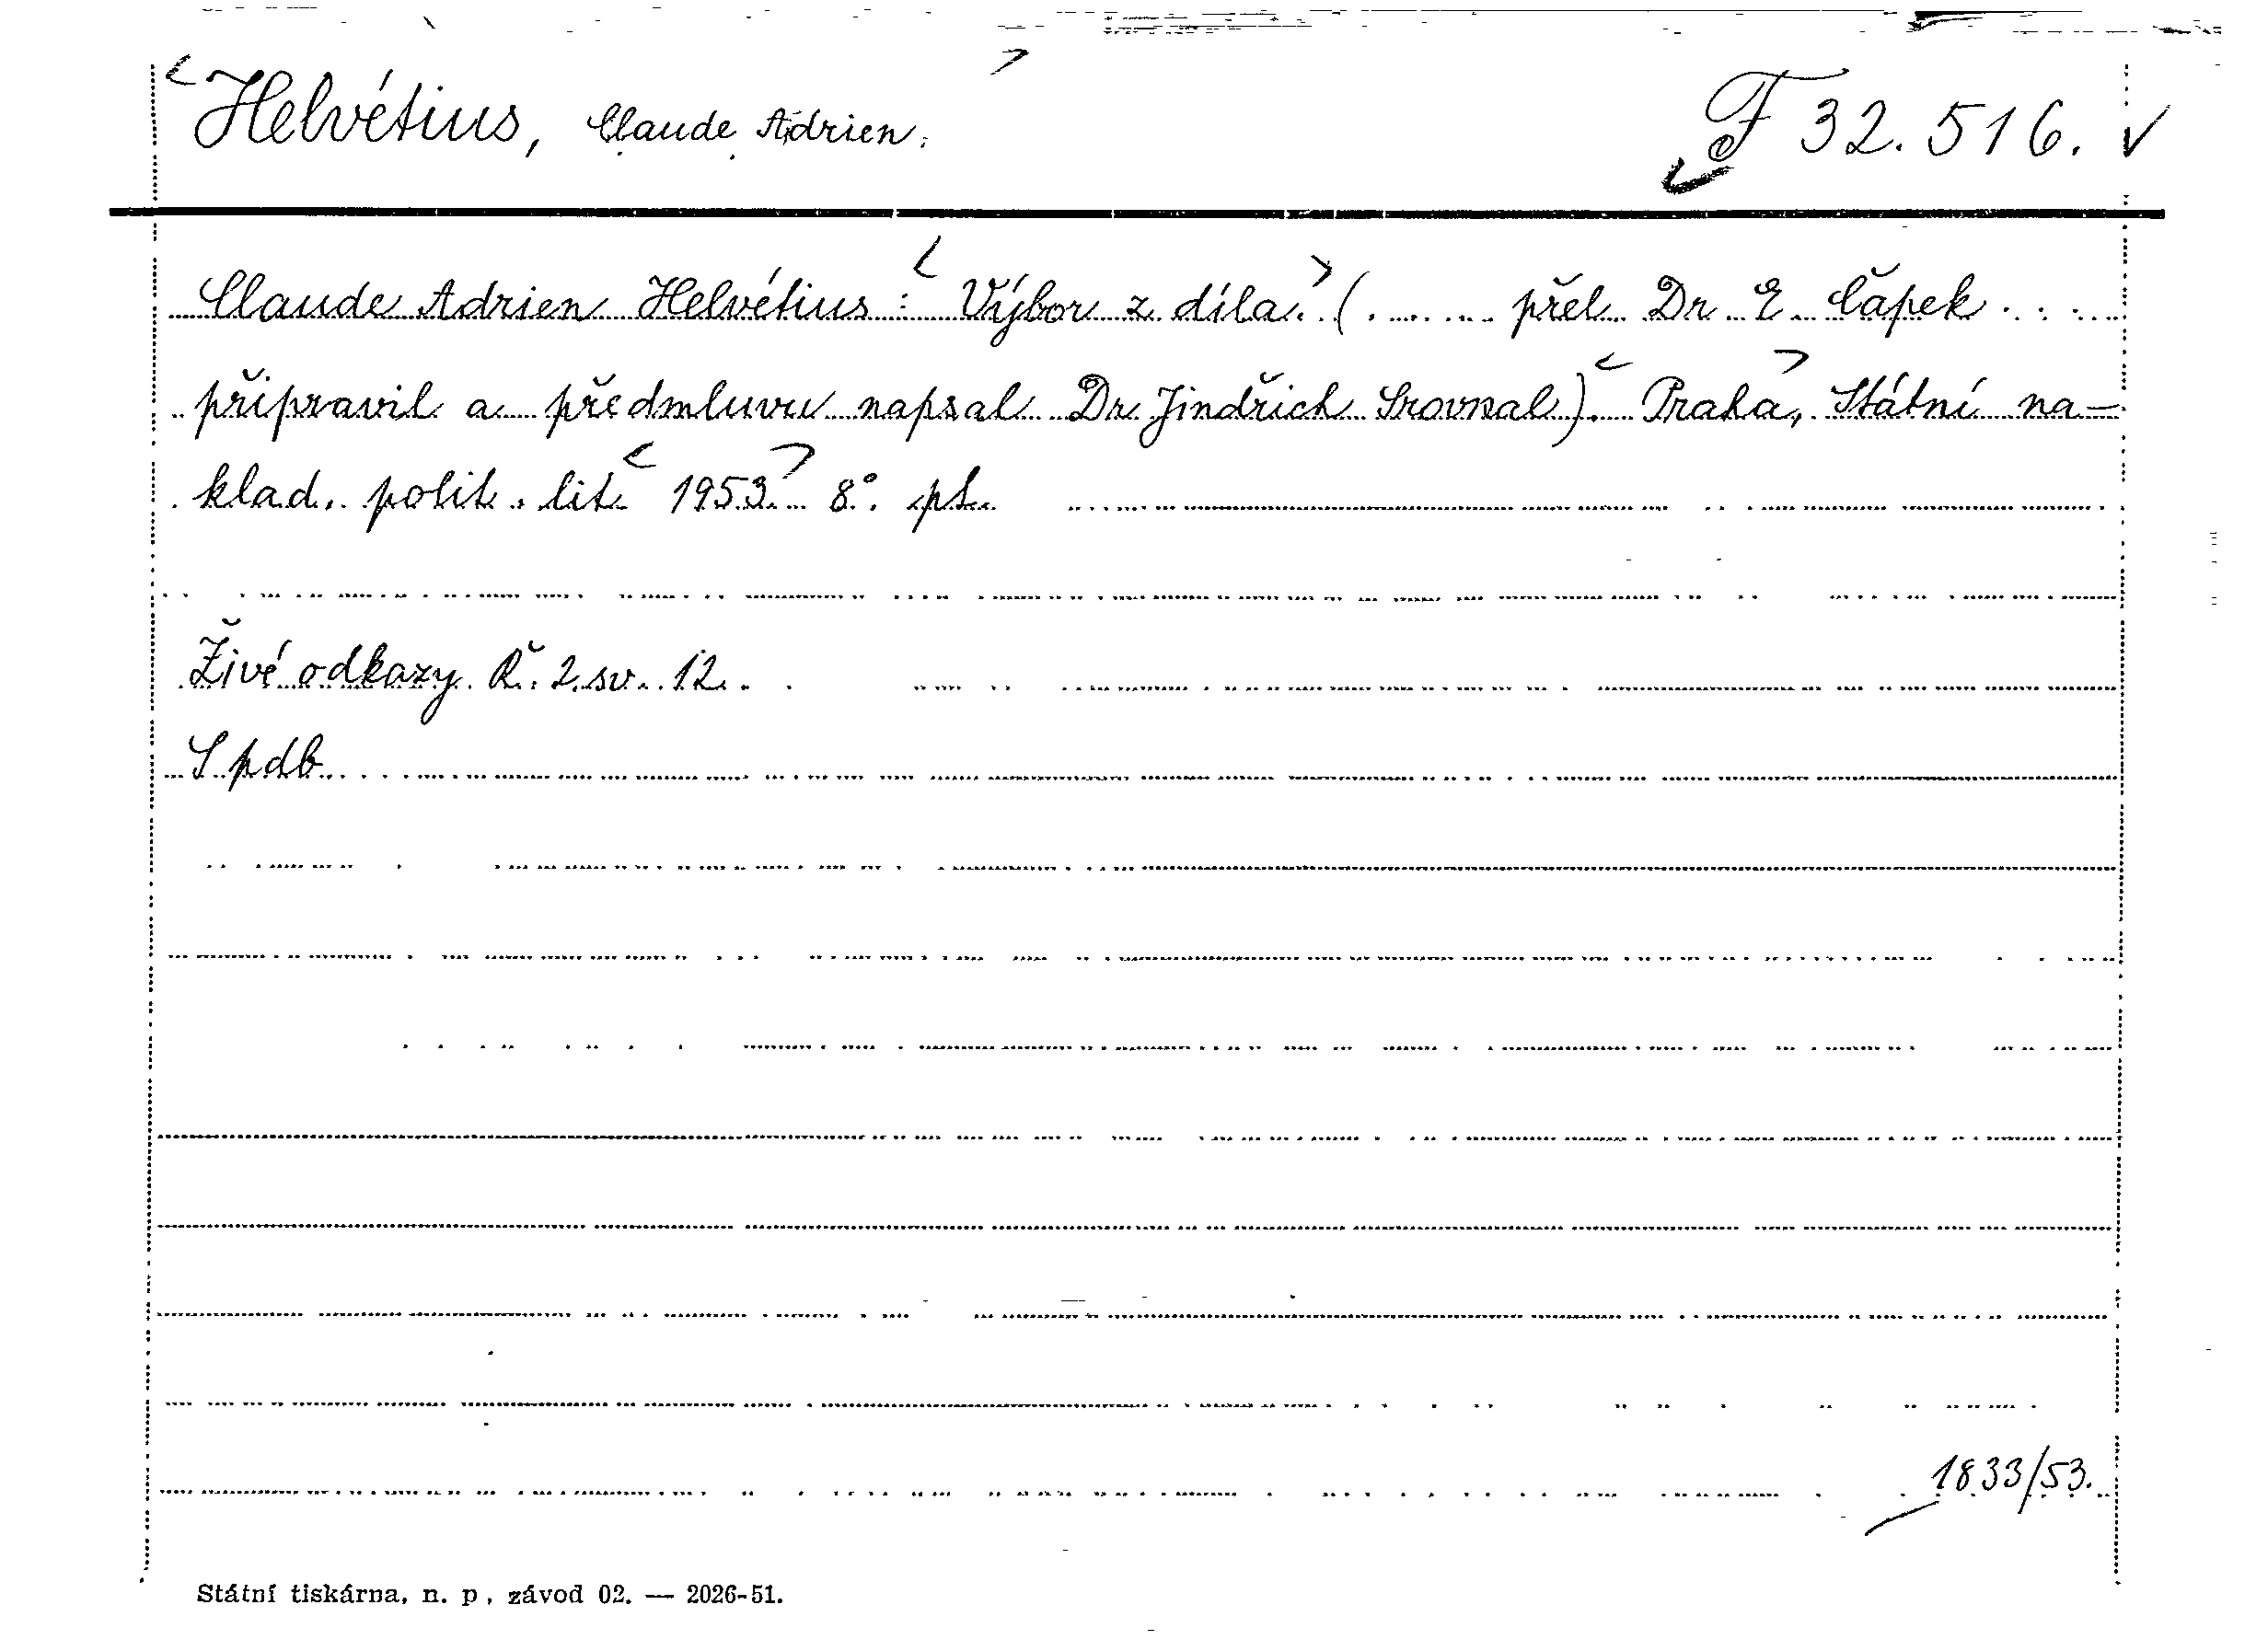 Helvétius, Claude Adrien. F 32.516.
Claude Adrien Helvétius: Výbor z díla. (........ přel. Dr E. Čápek.....
připravil a předmluvu napsal Dr Jindřich Srovnal). Praha, Státní na-
klad. polit. lit. 1953. 8°. pt.
Živé odkazy. Ř. 2. sv. 12.
S pdb
1833/53.
Státní tiskárna, n. p., závod 02. — 2026-51.